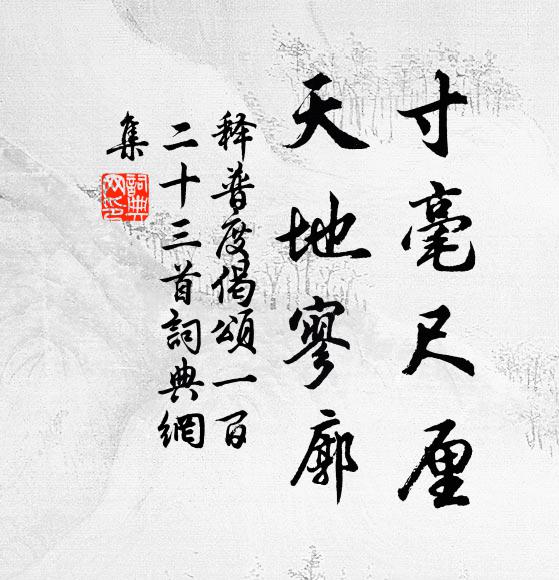 寸毫尺厘
天地寥廓
释普度偈頌一百
二十三首詞典網
集
詞典網印